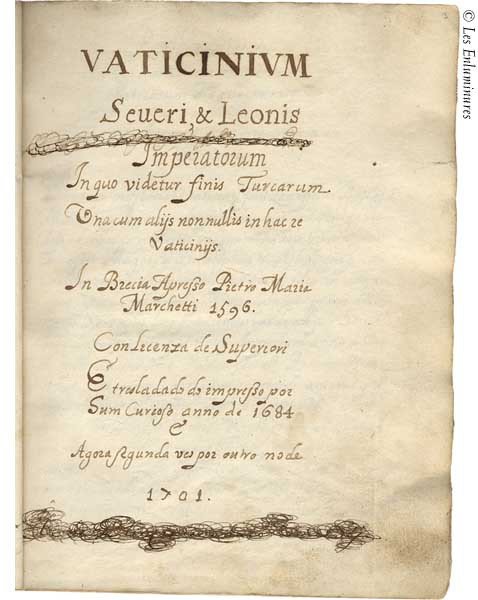 VATICINIVM
Seueri, & Leonis
Imperatorum
In quo videtur finis Turcarum
Vna cum alijs nonnullis in hac re
Vaticinijs.
In Brecia Apresso Pietro Maria
Marchetti 1596.
Con Licenza de Superiori
E trasladado do impresso por
hum Curioso anno de 1684
E
Agora segunda ves por outro no de
1701.
© Les Enluminures